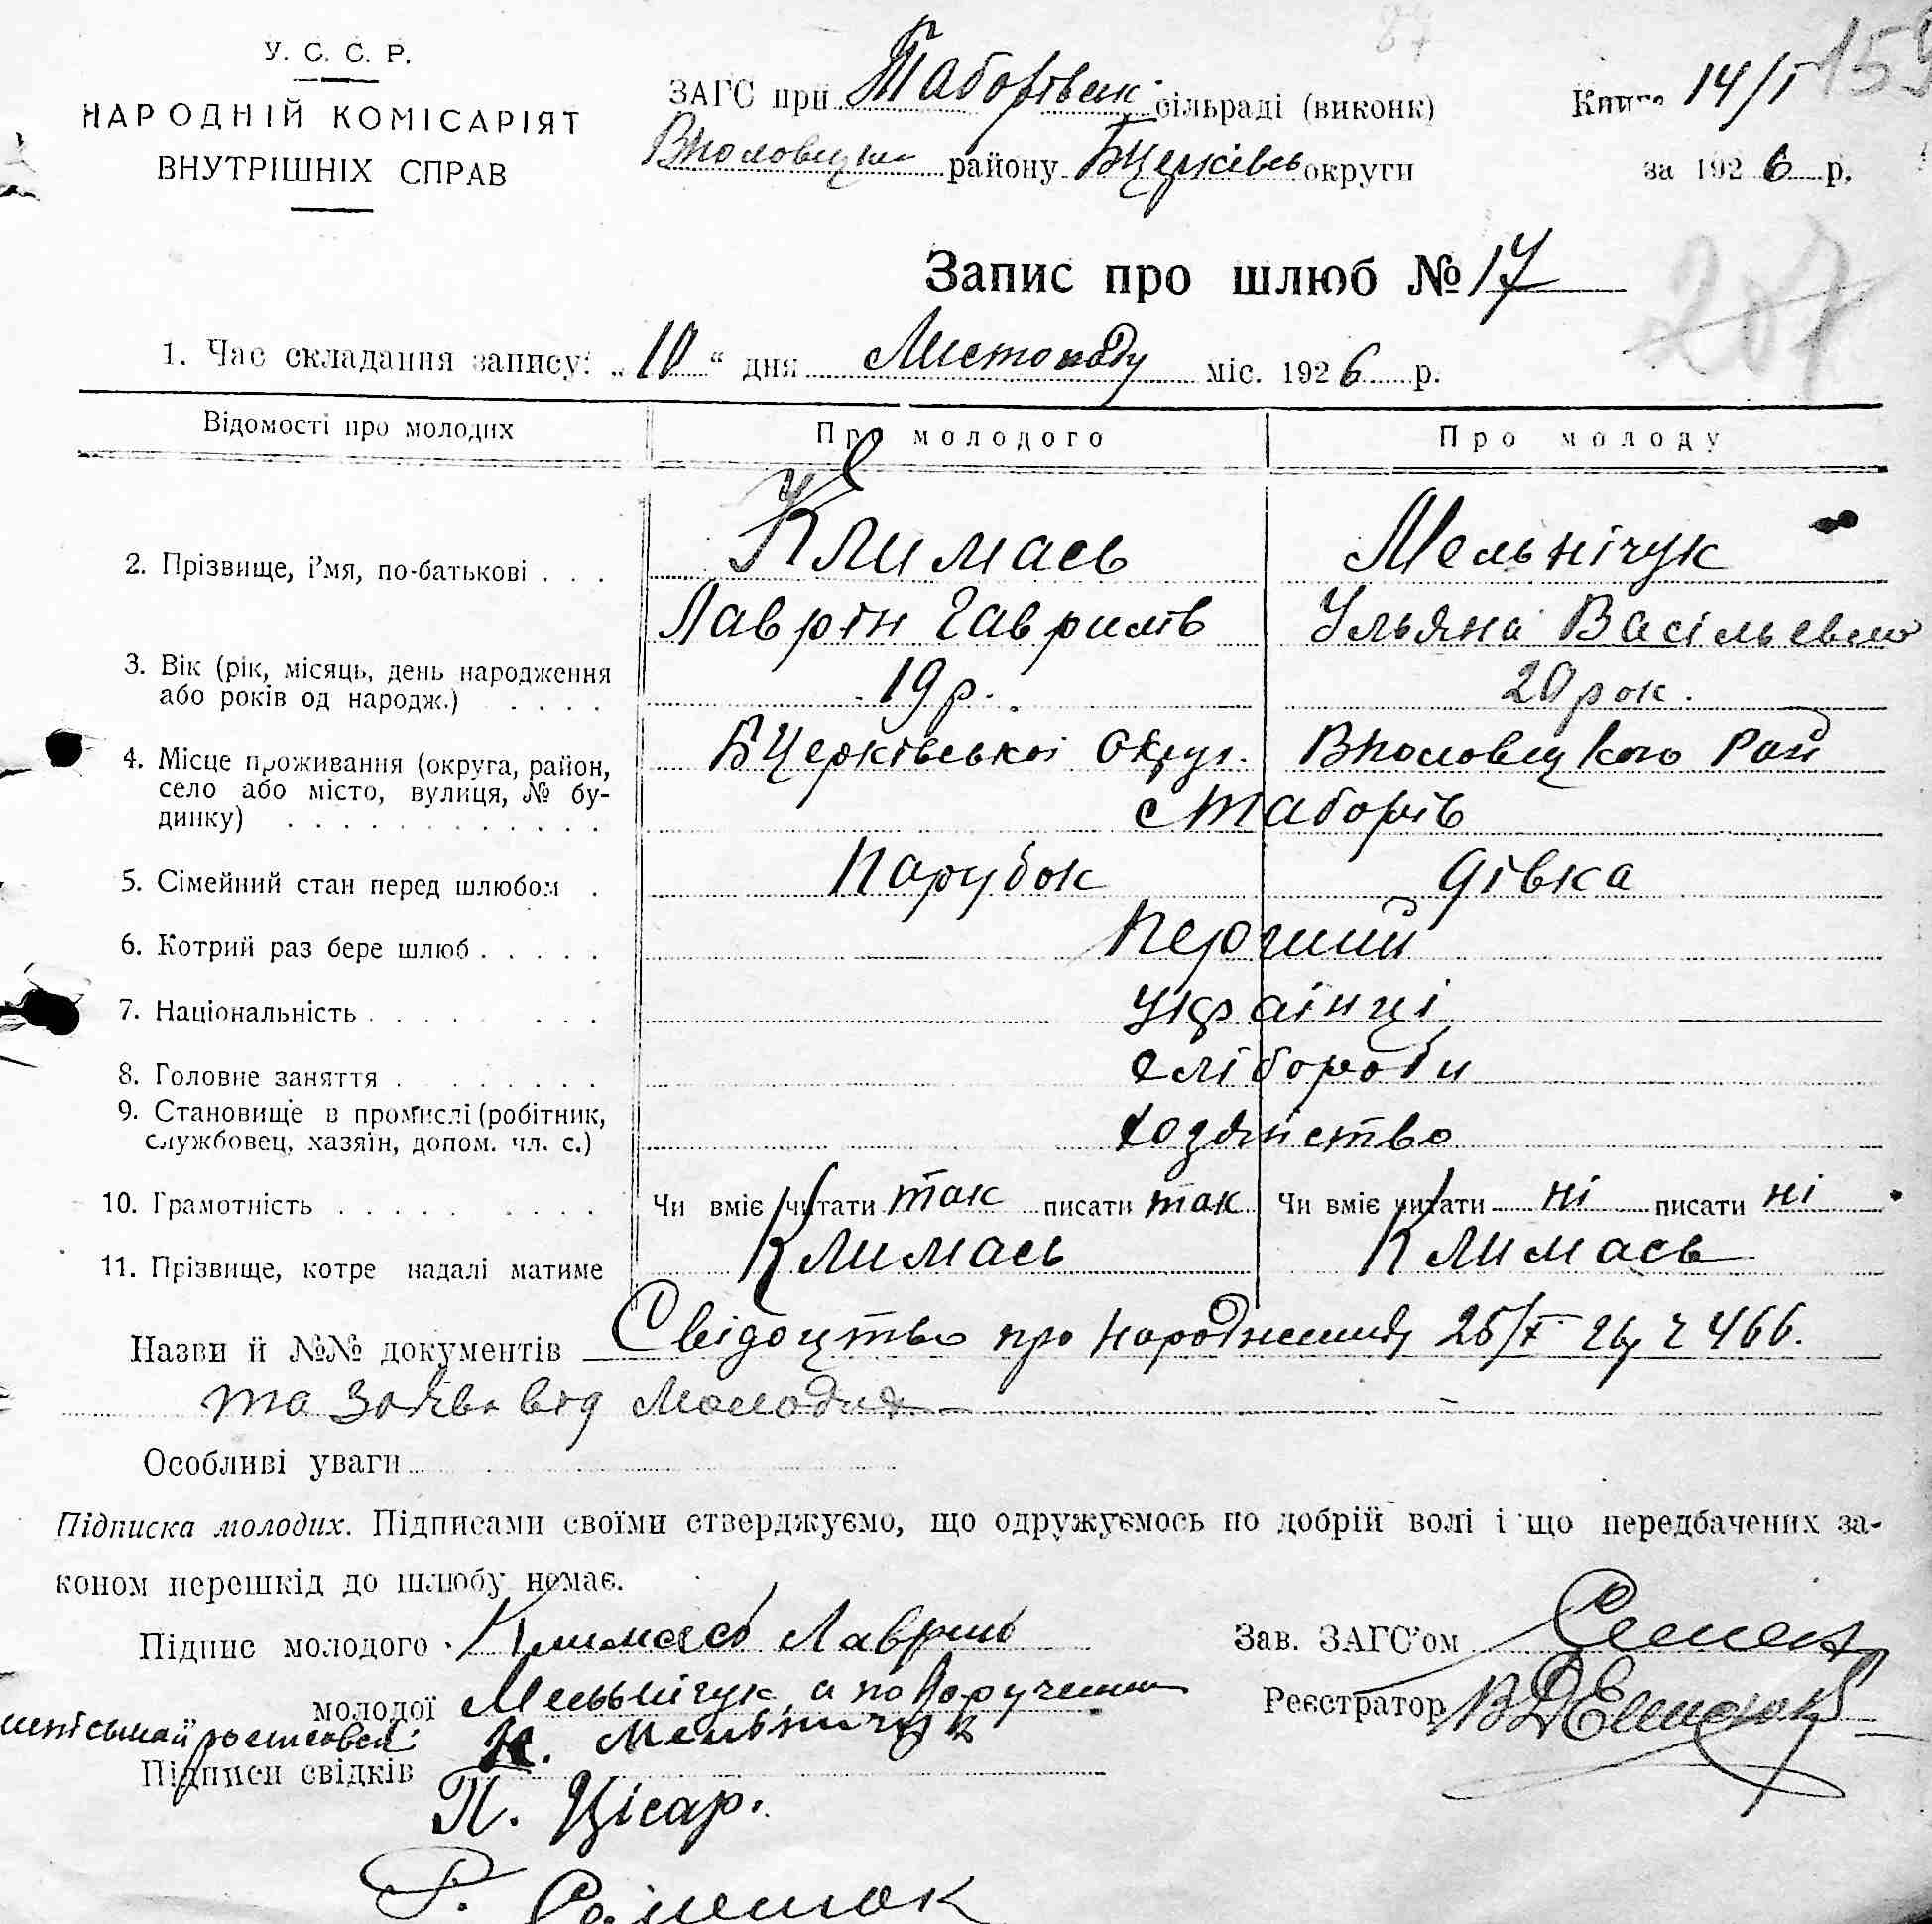 У. С. С. Р.
НАРОДНІЙ КОМІСАРІЯТ
ВНУТРІШНІХ СПРАВ
ЗАГС при Таборівськ. сільраді (виконк)
Вполовецьк района Бцерківсь округи
Книга 14/I 159
за 1926 р.
87
Запис про шлюб № 17
207
1. Час складання запису: „10“ дня Листопаду міс. 1926 р.
Відомості про молодих Про молодого Про молоду
2. Прізвище, і'мя, по-батькові . . . Климась Мельнічук
Лаврін Гаврилів Ульяна Васільевна
3. Вік (рік, місяць, день народження
або років од народж.) . . . . 19 р. 20 рок.
4. Місце проживання (округа, район, БЦерківської Округ. Вполовецького Рай
село або місто, вулиця, № бу-
динку) . . . . . . . . . . . . с Таборів
5. Сімейний стан перед шлюбом . Парубок дівка
6. Котрий раз бере шлюб . . . . . Перший
7. Національність . . . . . . . . українці
8. Головне заняття . . . . . . . хлібороби
9. Становище в промислі (робітник,
службовец, хазяїн, допом. чл. с.) хозяйство
10. Грамотність . . . . . . . . . Чи вміє читати так писати так Чи вміє читати ні писати ні
11. Прізвище, котре надалі матиме Климась Климась
Назви й №№ документів Свідоцтво про народження 25/X 26 ч 466.
та Заява від Молодих
Особливі уваги
Підписка молодих. Підписами своїми стверджуємо, що одружуємось по добрій волі і що передбачених за-
коном перешкід до шлюбу немає.
Підпис молодого Климась Лаврін Зав. ЗАГС'ом
молодої Мельнічук, а по Поручению Реєстратор
К. Мельничук
Підписи свідків
П. Цісар.